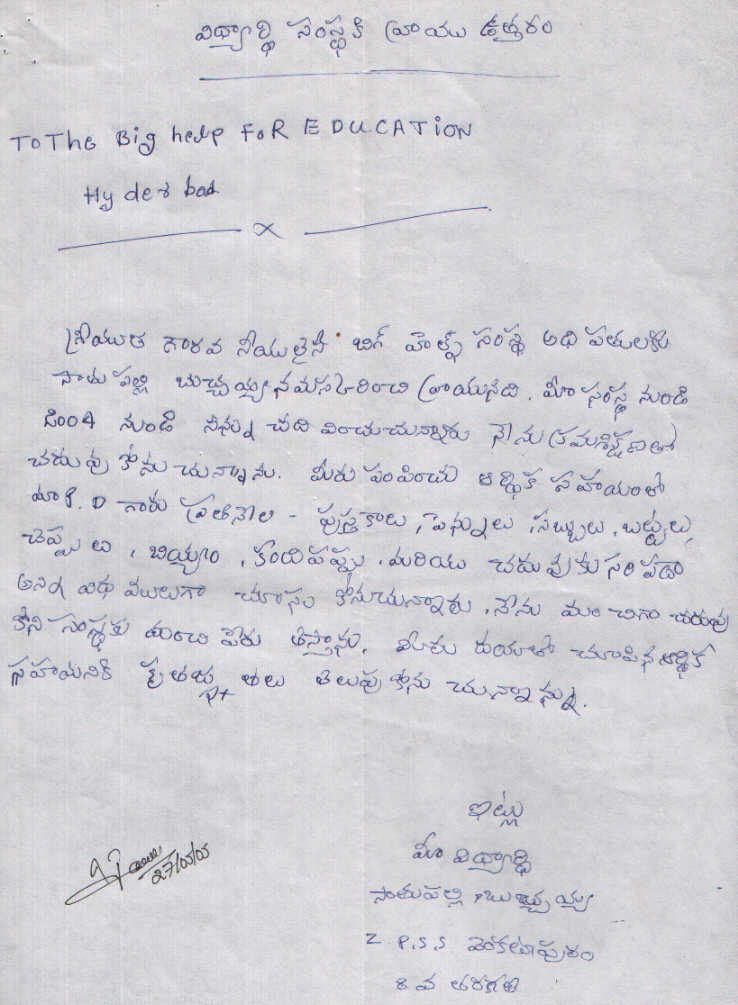 విద్యార్థి సంస్థకి వ్రాయు ఉత్తరం
TO The Big help FoR EDUCATiON
Hyderbad
శ్రీయుత గౌరవ నీయులైన బిగ్ హెల్ప్ సంస్థ అధి పతులకు
సాతుపల్లి బుచ్చయ్య నమస్కరించి వ్రాయునది. మీ సంస్థ నుండి
2004 నుండి నన్ను చది వించుచున్నారు నేను క్రమశిక్షణతో
చదువు కోను చున్నాను. మీరు పంపించు ఆర్థిక సహాయంతో
మా P.D గారు ప్రతినెల - పుస్తకాలు, పెన్నులు, సబ్బులు, బట్టలు,
చెప్పులు, బియ్యం, కందిపప్పు, మరియు చదువుకు సరిపడా
అన్ని విధ వీలులుగా చూసు కోనుచున్నారు, నేను మం చిగా చదువు
కోని సంస్థకు మంచి పేరు తెస్తాను, మీరు దయతో చూపిన ఆర్థిక
సహాయనికి కృతజ్ఞ తలు తెలుపు కోను చున్నాన్ను.
ఇట్లు
మీ విద్యార్థి
సాతుపల్లి, బుచ్చయ్య
Z.P.S.S వెంకటాపురం
8 వ తరగతి
27/05/05